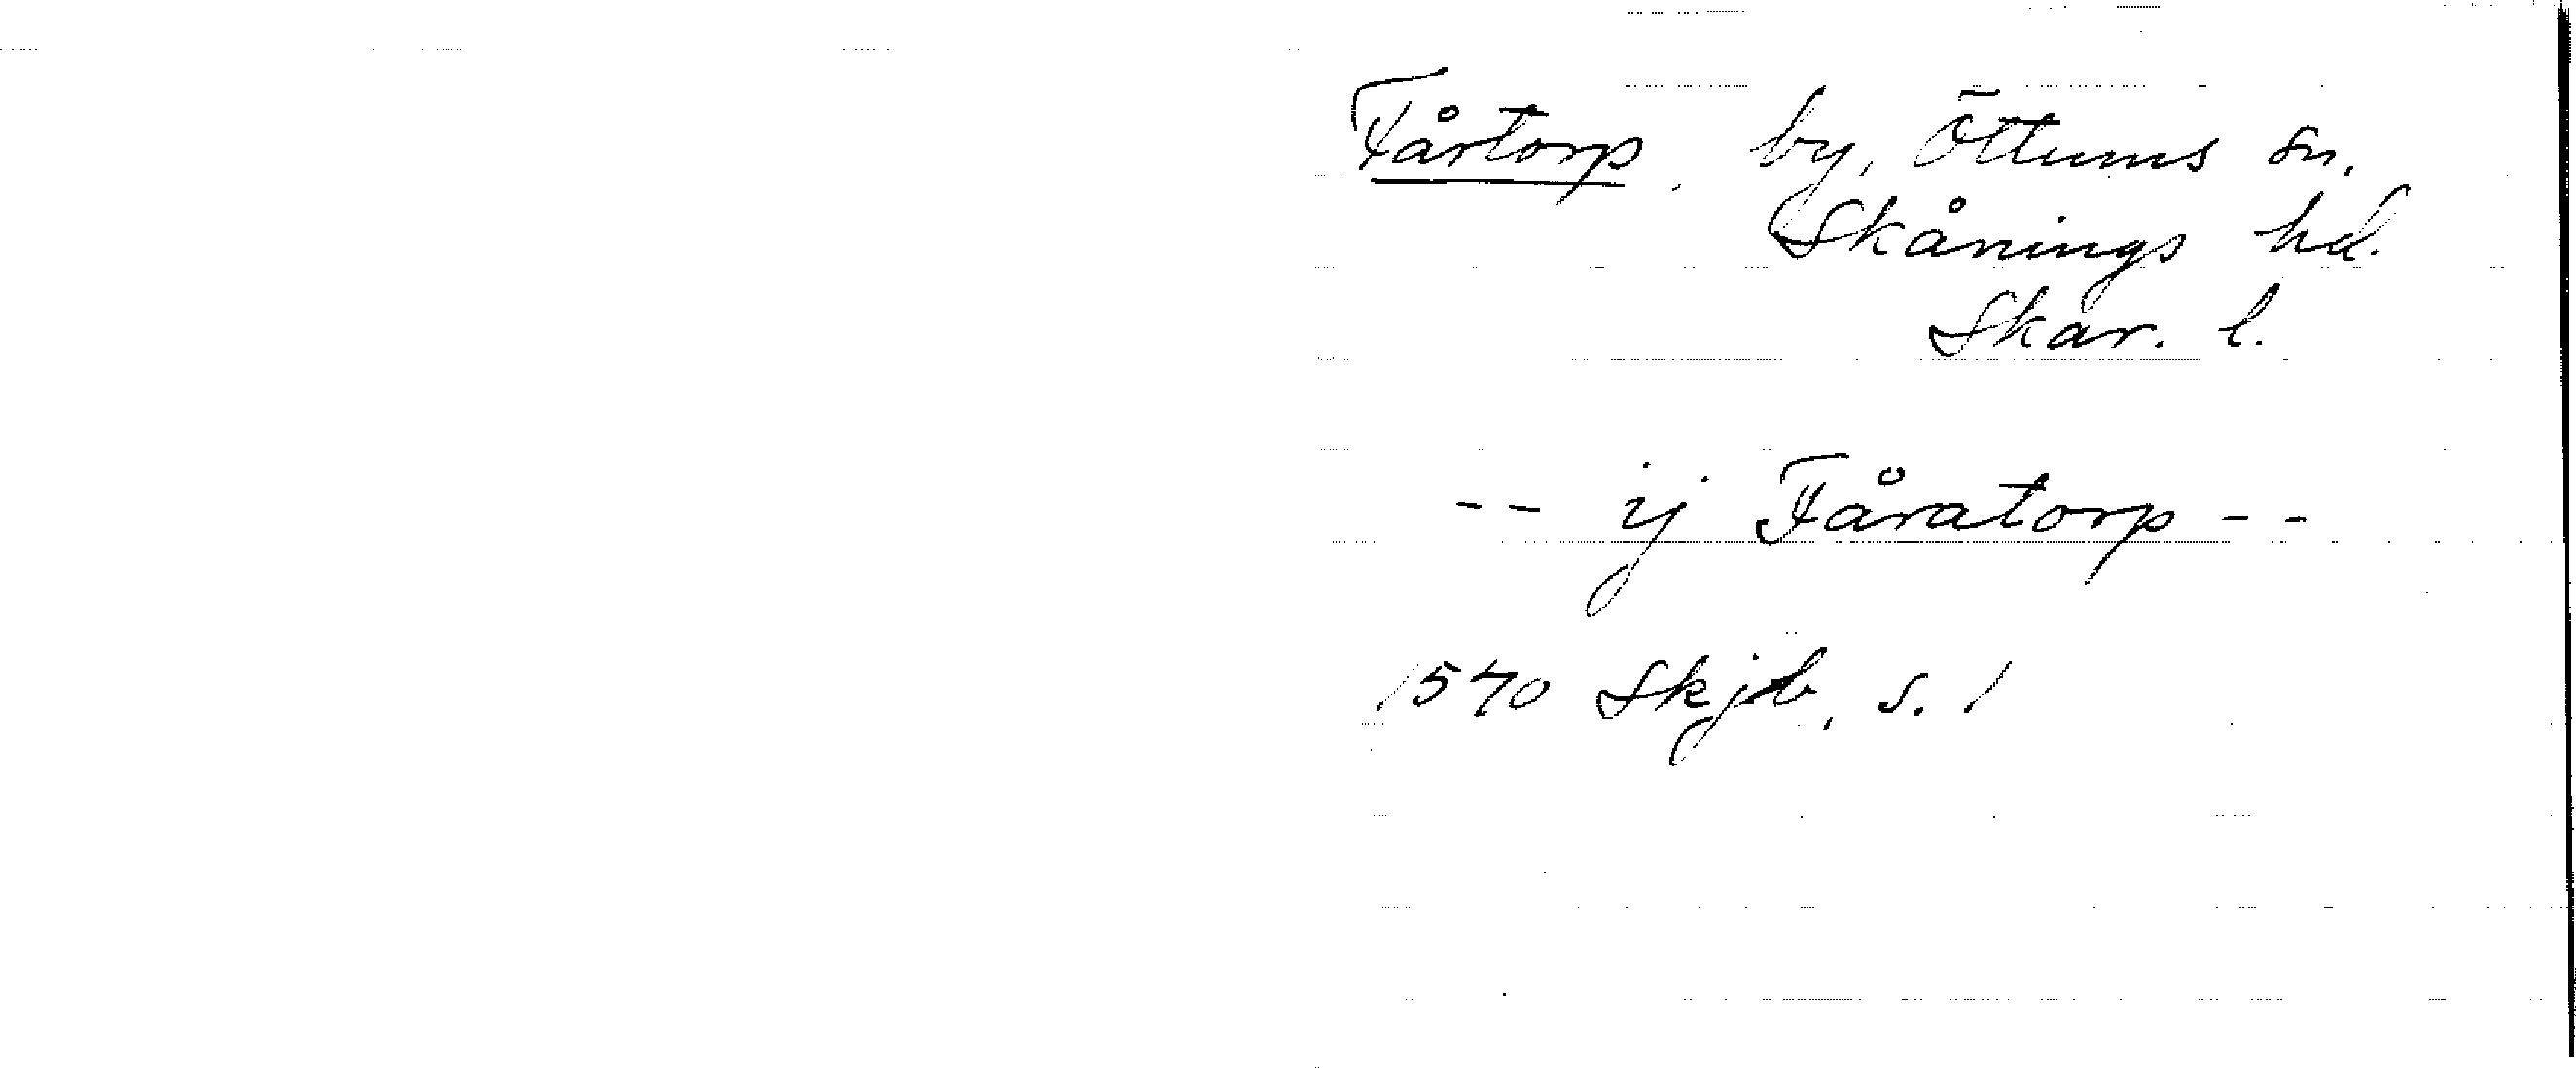 Fårtorp, by, Öttums sn.
Skånings hd.
Skar. l.
-- ij Fåratorp --
1540 Skjb, s. 1